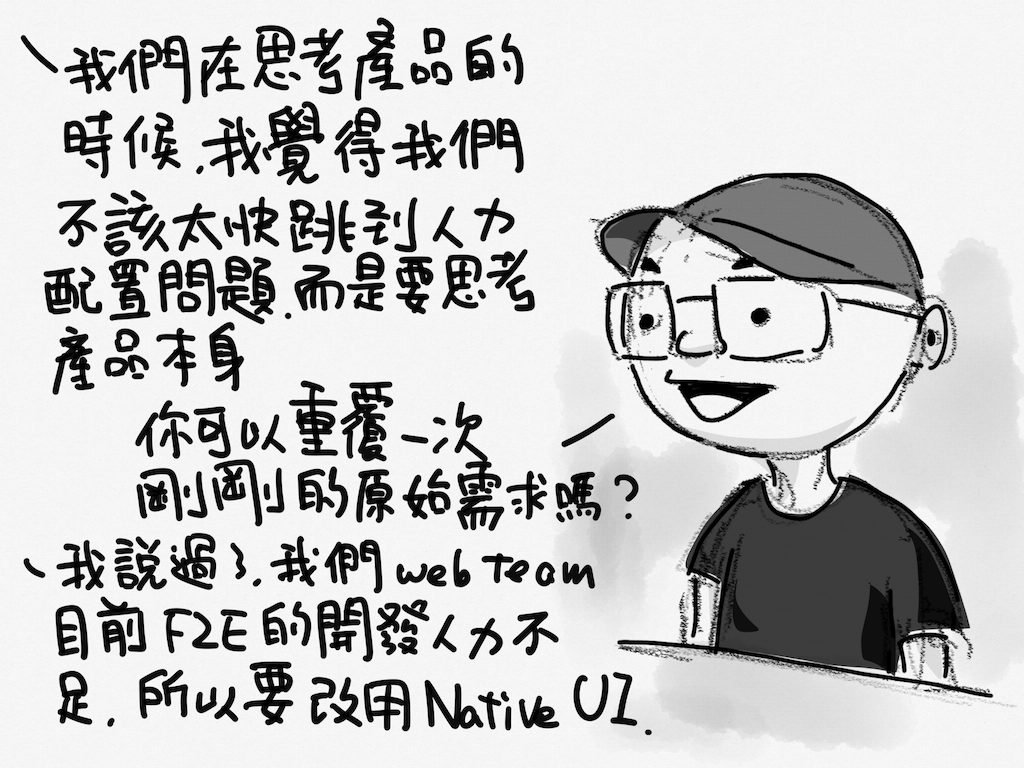 我們在思考產品的
時候,我覺得我們
不該太快跳到人力
配置問題,而是要思考
產品本身
你可以重覆一次
剛剛的原始需求嗎?
我說過了,我們 web team
目前 F2E 的開發人力不
足,所以要改用 Native UI.